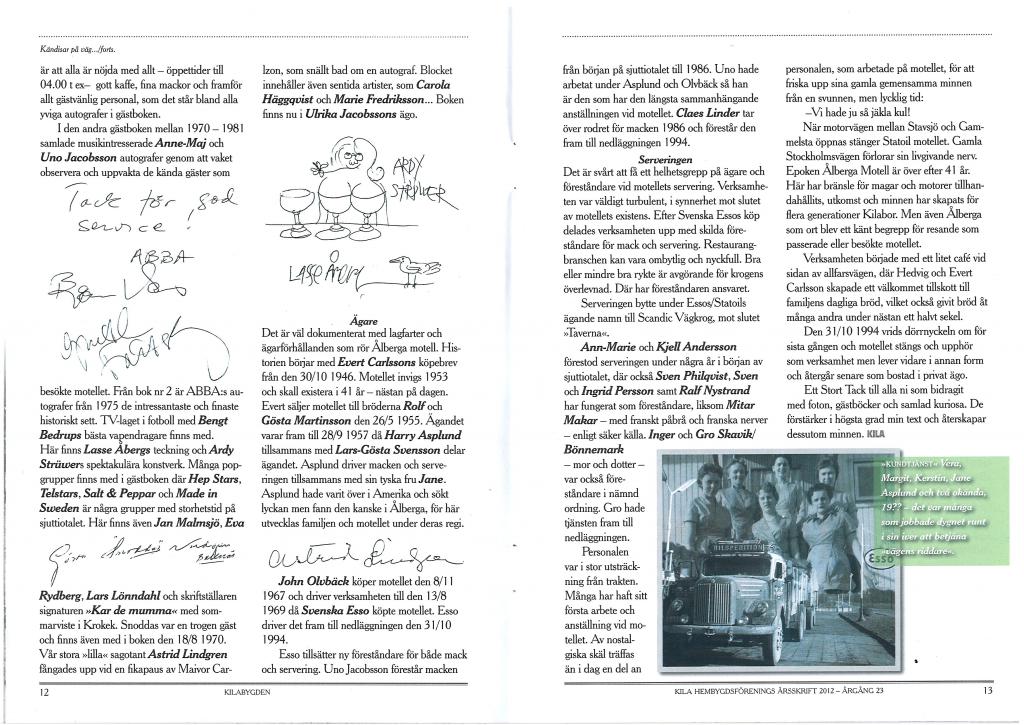 Kändisar på väg.../forts.
är att alla är nöjda med allt – öppettider till
04.00 t ex– gott kaffe, fina mackor och framför
allt gästvänlig personal, som det står bland alla
yviga autografer i gästboken.
I den andra gästboken mellan 1970 – 1981
samlade musikintresserade Anne-Maj och
Uno Jacobsson autografer genom att vaket
observera och uppvakta de kända gäster som
Tack för god
service!
ABBA
besökte motellet. Från bok nr 2 är ABBA:s au-
tografer från 1975 de intressantaste och finaste
historiskt sett. TV-laget i fotboll med Bengt
Bedrups bästa vapendragare finns med.
Här finns Lasse Åbergs teckning och Ardy
Strüwers spektakulära konstverk. Många pop-
grupper finns med i gästboken där Hep Stars,
Telstars, Salt & Peppar och Made in
Sweden är några grupper med storhetstid på
sjuttiotalet. Här finns även Jan Malmsjö, Eva
Rydberg, Lars Lönndahl och skriftställaren
signaturen »Kar de mumma« med som-
marviste i Krokek. Snoddas var en trogen gäst
och finns även med i boken den 18/8 1970.
Vår stora »lilla« sagotant Astrid Lindgren
fångades upp vid en fikapaus av Maivor Car-
12
KILABYGDEN
lzon, som snällt bad om en autograf. Blocket
innehåller även sentida artister, som Carola
Häggqvist och Marie Fredriksson... Boken
finns nu i Ulrika Jacobssons ägo.
ARDY
STRÜWER
LASSE ÅBERG
Ägare
Det är väl dokumenterat med lagfarter och
ägarförhållanden som rör Ålberga motell. His-
torien börjar med Evert Carlssons köpebrev
från den 30/10 1946. Motellet invigs 1953
och skall existera i 41 år – nästan på dagen.
Evert säljer motellet till bröderna Rolf och
Gösta Martinsson den 26/5 1955. Ägandet
varar fram till 28/9 1957 då Harry Asplund
tillsammans med Lars-Gösta Svensson delar
ägandet. Asplund driver macken och serve-
ringen tillsammans med sin tyska fru Jane.
Asplund hade varit över i Amerika och sökt
lyckan men fann den kanske i Ålberga, för här
utvecklas familjen och motellet under deras regi.
Astrid Lindgren
John Olvbäck köper motellet den 8/11
1967 och driver verksamheten till den 13/8
1969 då Svenska Esso köpte motellet. Esso
driver det fram till nedläggningen den 31/10
1994.
Esso tillsätter ny föreståndare för både mack
och servering. Uno Jacobsson förestår macken
från början på sjuttiotalet till 1986. Uno hade
arbetat under Asplund och Olvbäck så han
är den som har den längsta sammanhängande
anställningen vid motellet. Claes Linder tar
över rodret för macken 1986 och förestår den
fram till nedläggningen 1994.
Serveringen
Det är svårt att få ett helhetsgrepp på ägare och
föreståndare vid motellets servering. Verksamhe-
ten var väldigt turbulent, i synnerhet mot slutet
av motellets existens. Efter Svenska Essos köp
delades verksamheten upp med skilda före-
ståndare för mack och servering. Restaurang-
branschen kan vara ombytlig och nyckfull. Bra
eller mindre bra rykte är avgörande för krogens
överlevnad. Där har föreståndaren ansvaret.
Serveringen bytte under Essos/Statoils
ägande namn till Scandic Vägkrog, mot slutet
»Taverna«.
Ann-Marie och Kjell Andersson
förestod serveringen under några år i början av
sjuttiotalet, där också Sven Philqvist, Sven
och Ingrid Persson samt Ralf Nystrand
har fungerat som föreståndare, liksom Mitar
Makar – med franskt påbrå och franska nerver
– enligt säker källa. Inger och Gro Skavik/
Bönnemark
– mor och dotter –
var också före-
ståndare i nämnd
ordning. Gro hade
tjänsten fram till
nedläggningen.
Personalen
var i stor utsträck-
ning från trakten.
Många har haft sitt
första arbete och
anställning vid mo-
tellet. Av nostal-
giska skäl träffas
än i dag en del an
personalen, som arbetade på motellet, för att
friska upp sina gamla gemensamma minnen
från en svunnen, men lycklig tid:
–Vi hade ju så jäkla kul!
När motorvägen mellan Stavsjö och Gam-
melsta öppnas stänger Statoil motellet. Gamla
Stockholmsvägen förlorar sin livgivande nerv.
Epoken Ålberga Motell är över efter 41 år.
Här har bränsle för magar och motorer tillhan-
dahållits, utkomst och minnen har skapats för
flera generationer Kilabor. Men även Ålberga
som ort blev ett känt begrepp för resande som
passerade eller besökte motellet.
Verksamheten började med ett litet café vid
sidan av allfarsvägen, där Hedvig och Evert
Carlsson skapade ett välkommet tillskott till
familjens dagliga bröd, vilket också givit bröd åt
många andra under nästan ett halvt sekel.
Den 31/10 1994 vrids dörrnyckeln om för
sista gången och motellet stängs och upphör
som verksamhet men lever vidare i annan form
och återgår senare som bostad i privat ägo.
Ett Stort Tack till alla ni som bidragit
med foton, gästböcker och samlad kuriosa. De
förstärker i högsta grad min text och återskapar
dessutom minnen. KILA
»KUNDTJÄNST« Vera,
Margit, Kerstin, Jane
Asplund och två okända,
19?? – det var många
som jobbade dygnet runt
i sin iver att betjäna
»vägens riddare«.
ESSO
KILA HEMBYGDSFÖRENINGS ÅRSSKRIFT 2012 – ÅRGÅNG 23
13